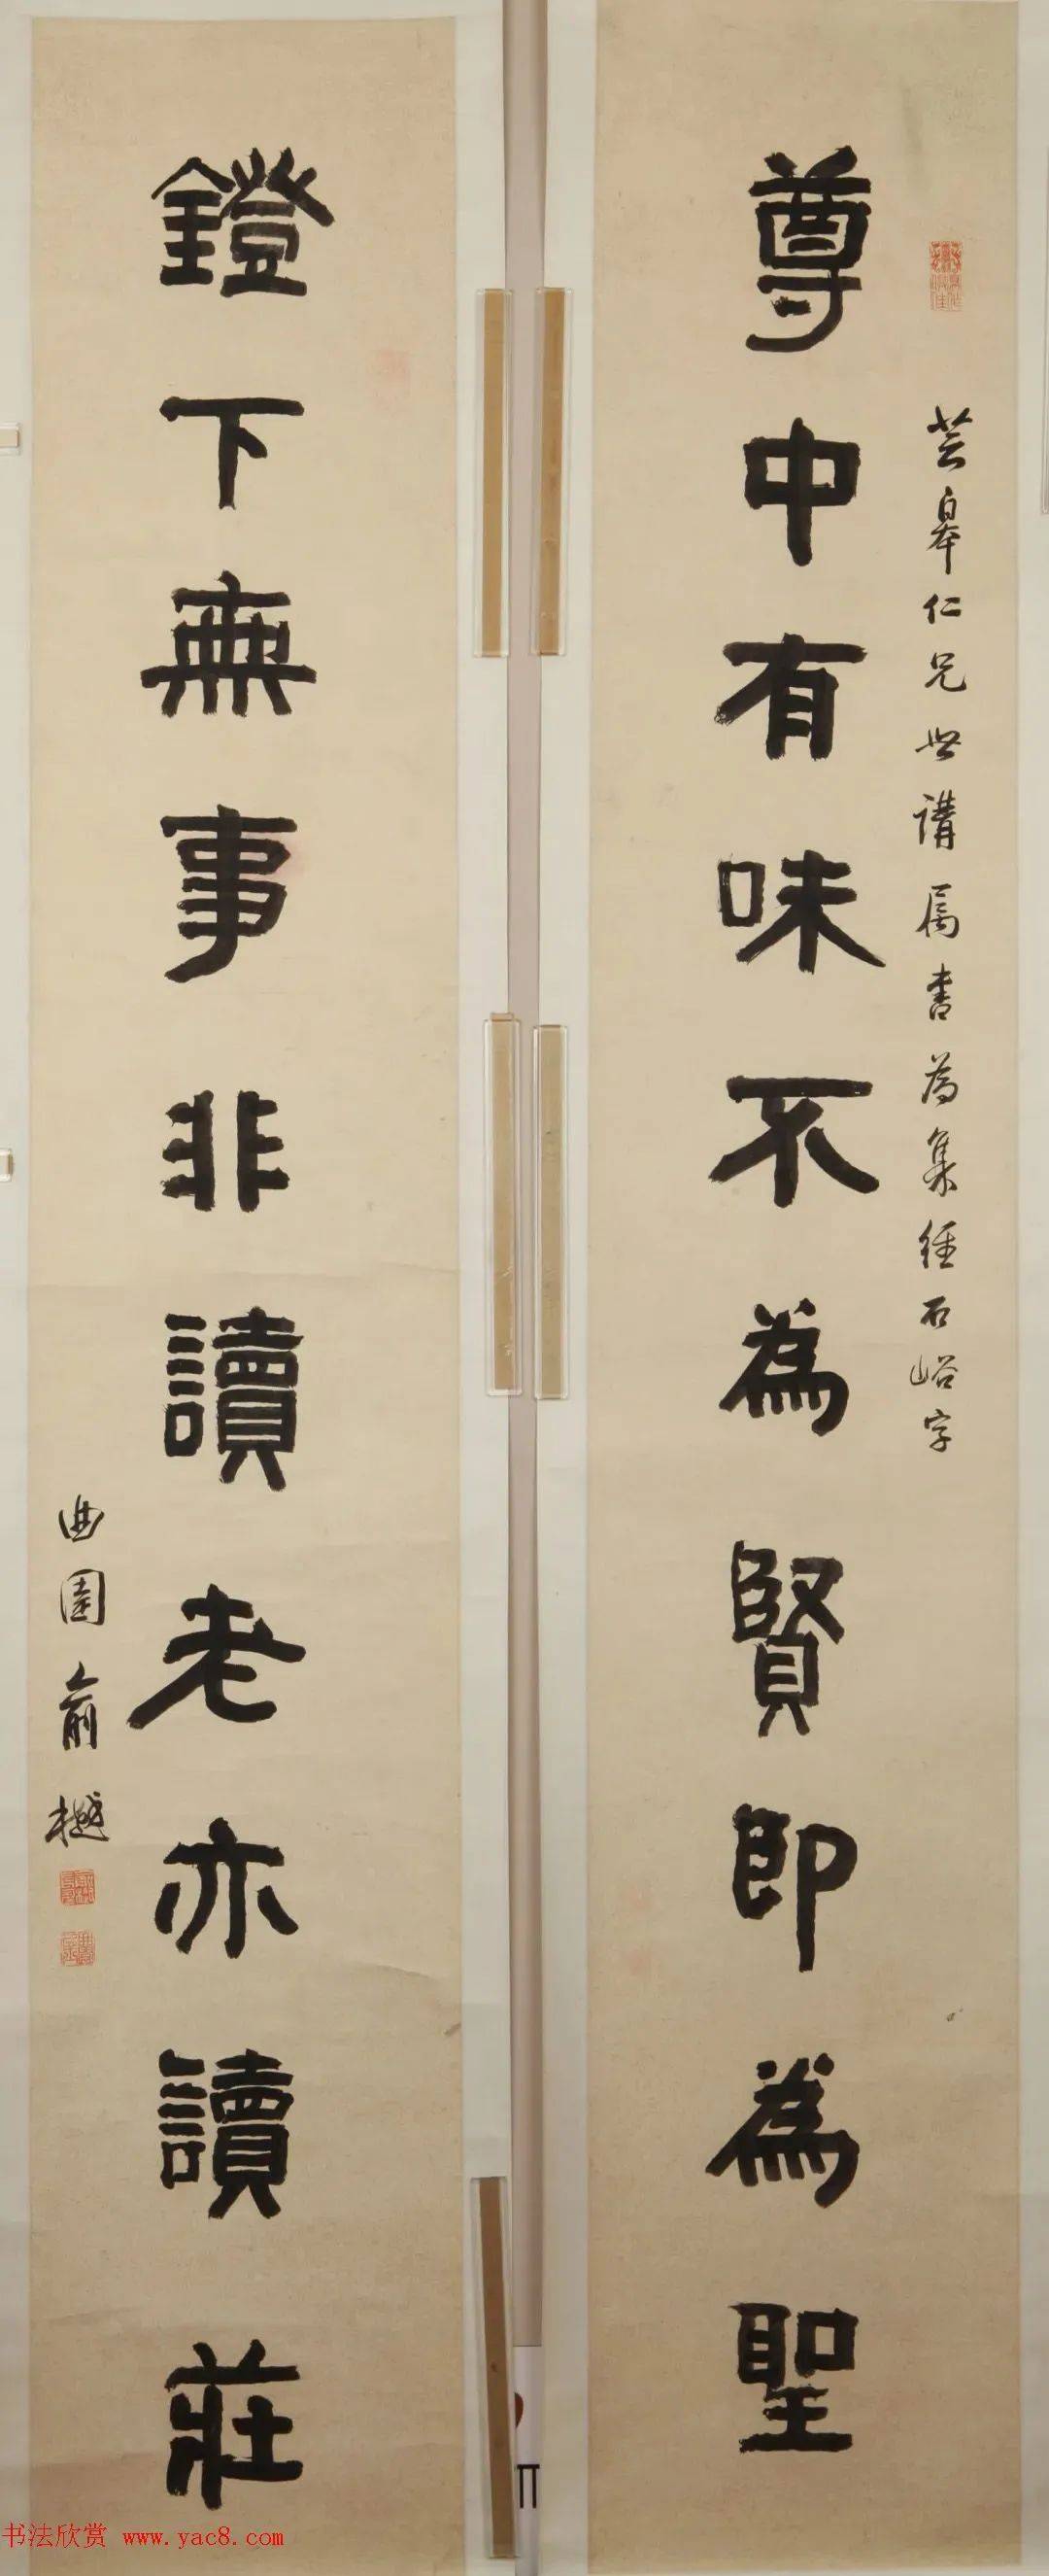 芸皋仁兄世講属書為集經石峪字
尊中有味不為賢即為聖
鐙下無事非讀老亦讀莊
曲園俞樾
书法欣赏 www.yac8.com